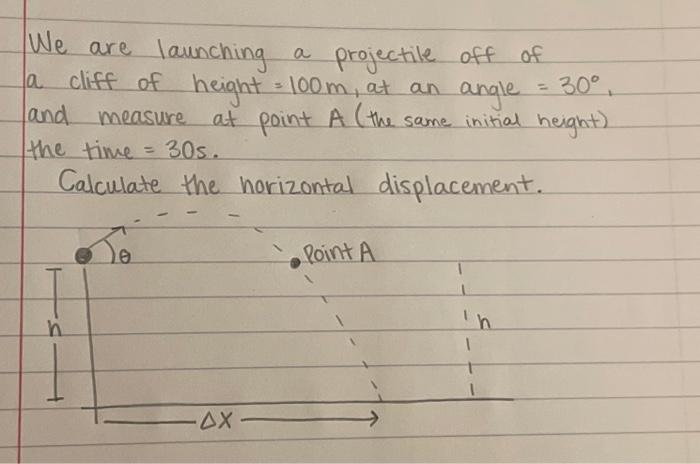 We are launching a projectile off of
a cliff of height = 100m, at an angle = 30°,
and measure at point A (the same initial height)
the time = 30s.
Calculate the horizontal displacement.
θ
Point A
h
h
Δx